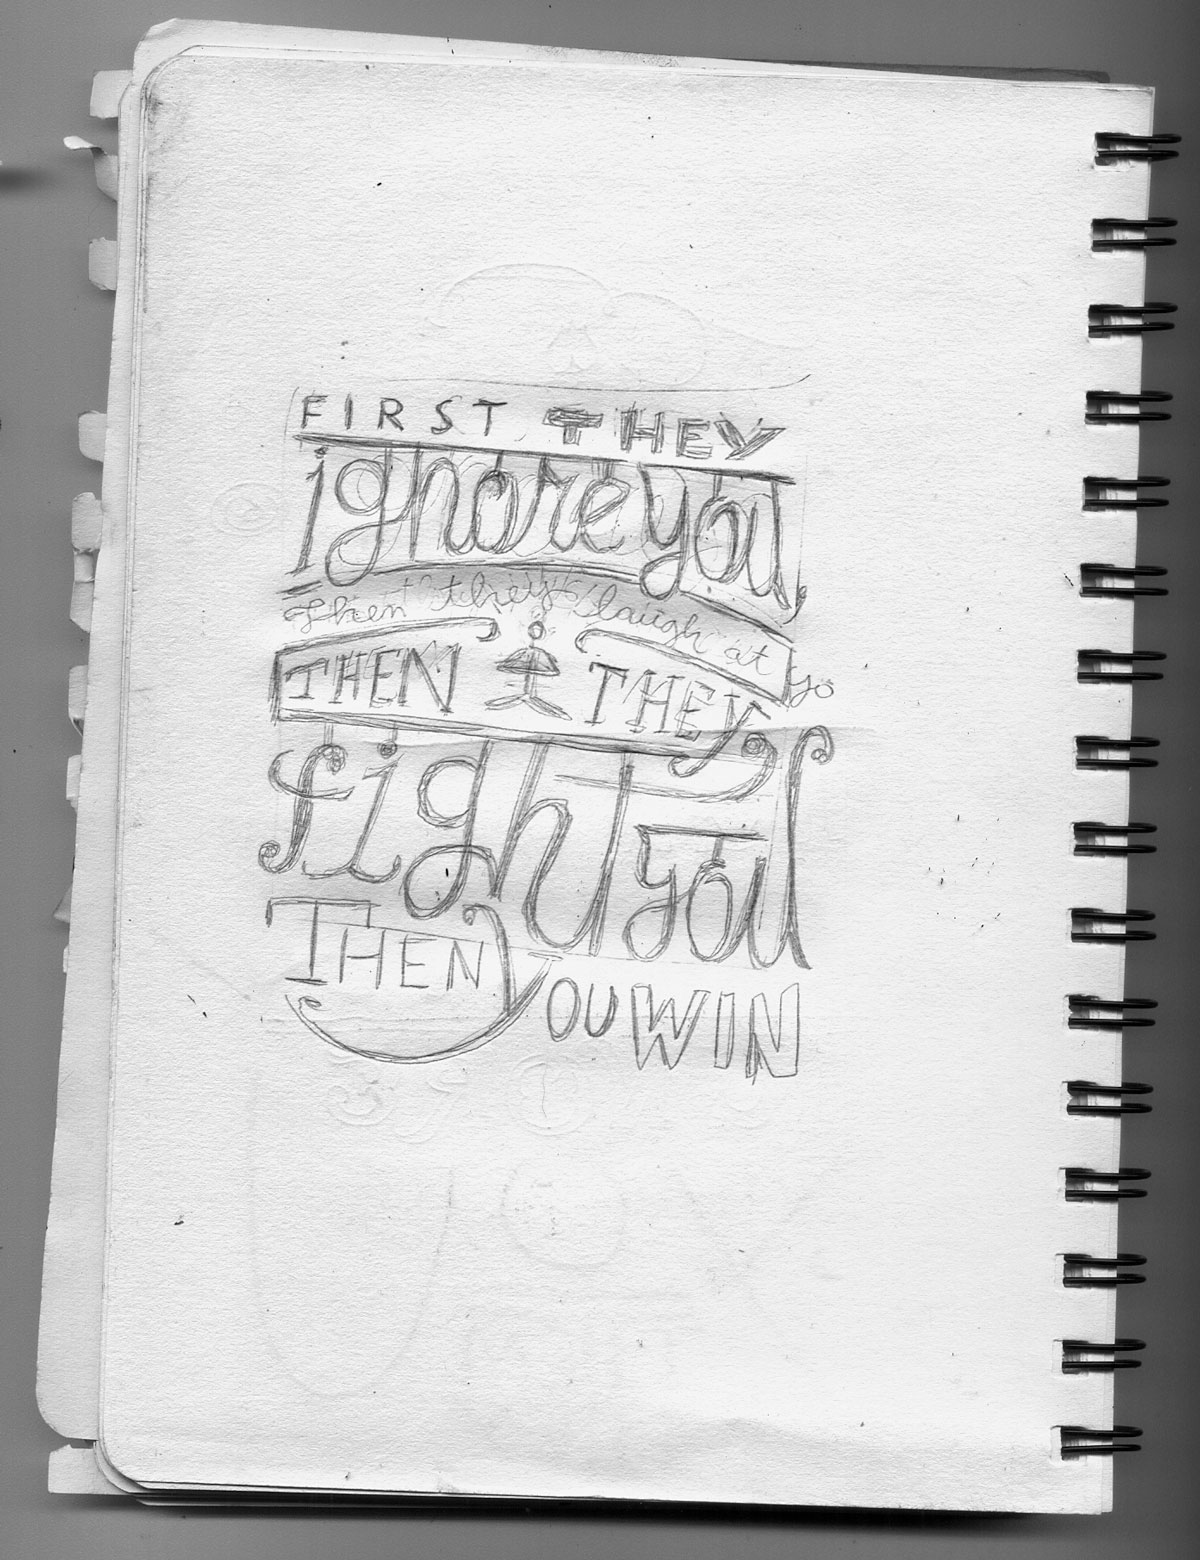 FIRST THEY
ignore you,
Then they laugh at yo
THEN THEY
fight you
THEN
YOU WIN